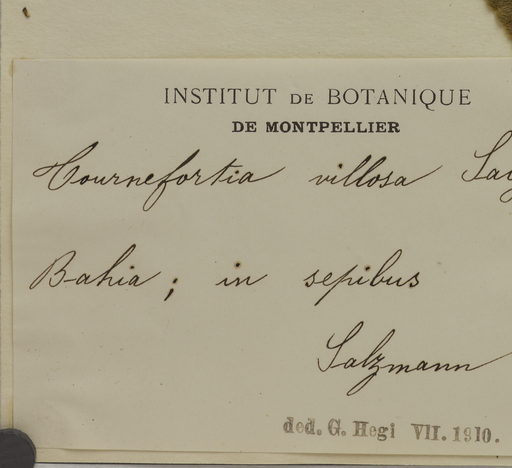 INSTITUT DE BOTANIQUE
DE MONTPELLIER
Tournefortia villosa
Bahia; in sepibus
Salzmann
ded. G. Hegi VII. 1910.